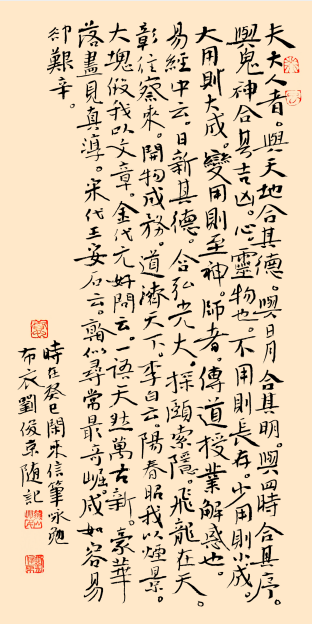 夫大人者。與天地合其德。與日月合其明。與四時合其序。
與鬼神合其吉凶。心。靈物也。不用則長存。少用則小成。
大用則大成。變用則至神。師者。傳道授業解惑也。
易經中云。日新其德。含弘光大。探賾索隱。飛龍在天。
彰往察來。開物成務。道濟天下。李白云。陽春昭我以煙景。
大塊假我以文章。金代元好問云。一語天然萬古新。豪華
落盡見真淳。宋代王安石云。看似尋常最奇崛。成如容易
却艱辛。
時在癸巳閑來信筆咏勉
布衣劉俊京隨記